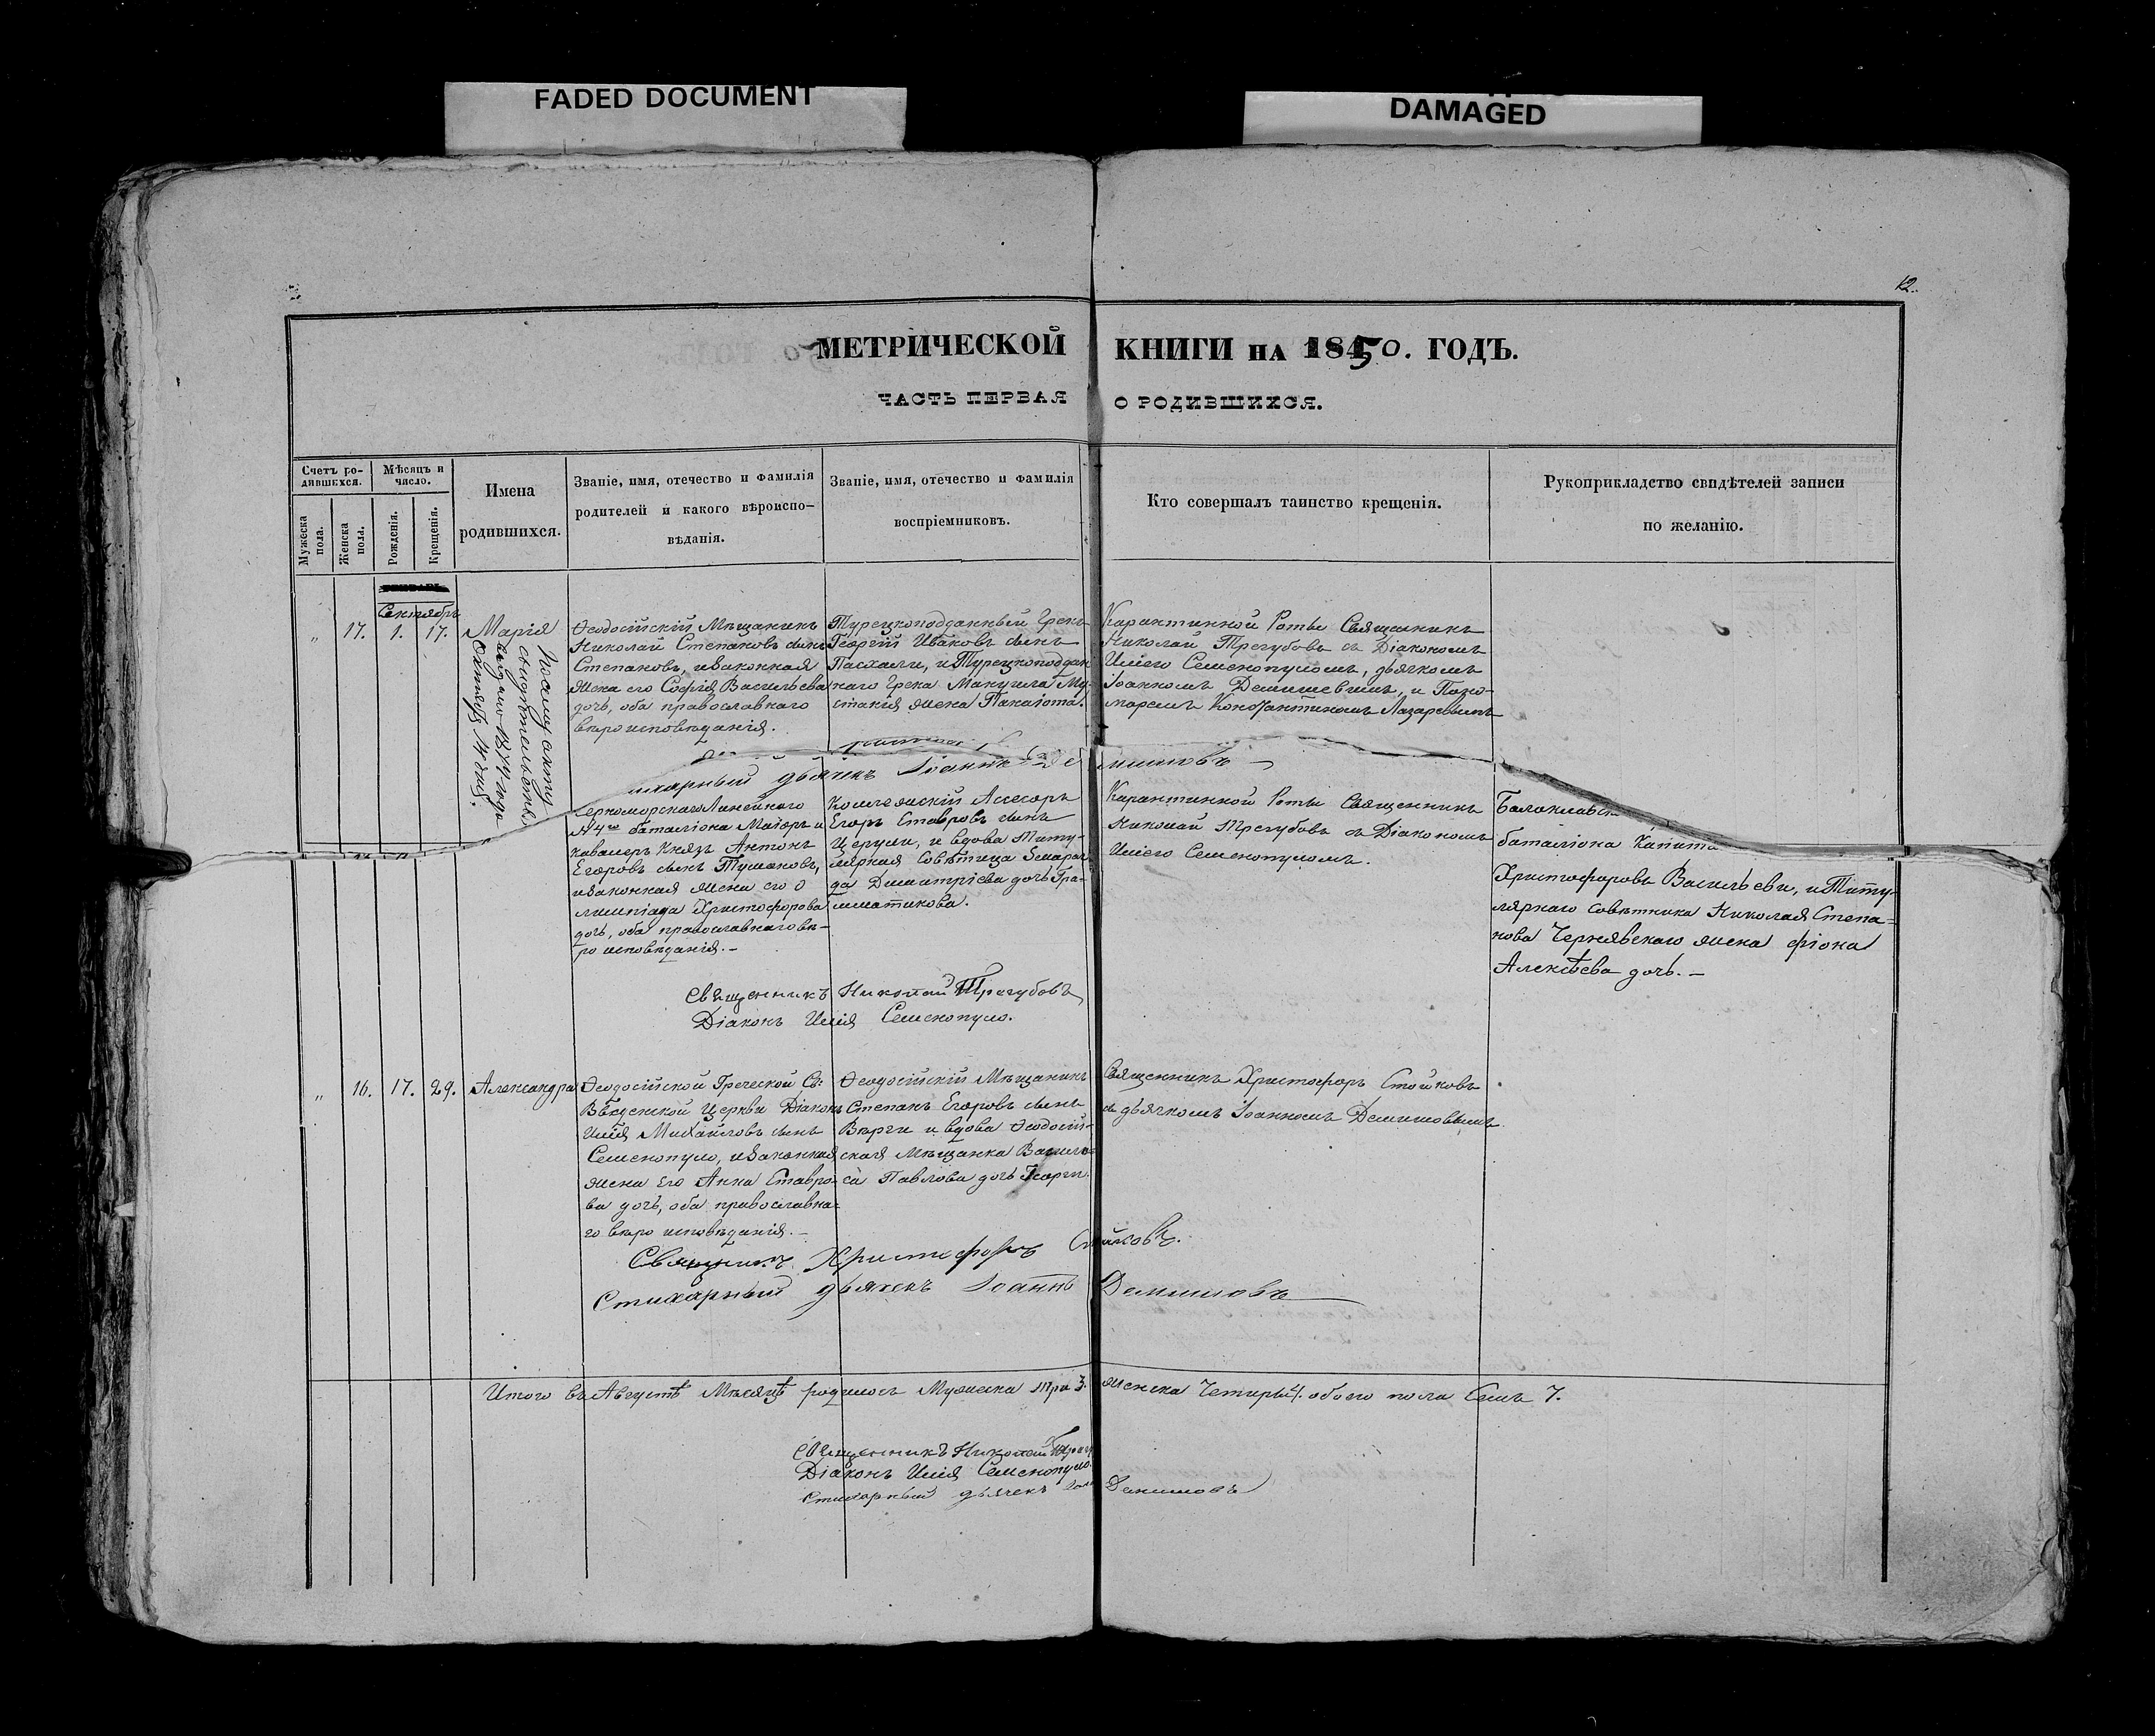 FADED DOCUMENT
DAMAGED
12.
МЕТРИЧЕСКОЙ КНИГИ НА 1850. ГОДЪ.
ЧАСТЬ ПЕРВАЯ О РОДИВШИХСЯ.
Счетъ ро-
дившихся.
Мужеска
пола.
Женска
пола.
Мѣсяцъ и
число.
Рожденія.
Крещенія.
Имена
родившихся.
Званіе, имя, отечество и фамилія
родителей и какого вѣроиспо-
вѣданія.
Званіе, имя, отечество и фамилія
воспріемниковъ.
Кто совершалъ таинство крещенія.
Рукоприкладство свидѣтелей записи
по желанію.
Сентябрь
„ 17. 1. 17. Марія
По сему акту
свидѣтельство
выдано 1874 года
Октября 14 дня.
Ѳеодосійскій Мѣщанинъ
Николай Степановъ сынъ
Степановъ, и законная
жена его Софія Васильева
дочь, оба православнаго
вѣроисповѣданія.
Турецкоподданный Грекъ
Георгій Ивановъ сынъ
Пасхали, и Турецкоподдан
наго Грека Мануила Му-
стакія жена Панаіота.
Карантинной Роты Священникъ
Николай Трегубовъ съ Діакономъ
Иліею Семенопуломъ, дьячкомъ
Іоанномъ Демишевымъ, и Поно-
маремъ Константиномъ Лазаревымъ
дьячекъ Іоаннъ
Черноморскаго Линейнаго
№ 4го баталіона Маіоръ и
Кавалеръ Князь Антонъ
Егоровъ сынъ Тумановъ,
и законная жена его О
лимпіада Христофорова
дочь, оба православнаго вѣ-
роисповѣданія. –
Коллежскій Ассесоръ
Егоръ Ставровъ сынъ
Церули, и вдова Титу-
лярная Совѣтница Змараг
да Димитріева дочь Гра-
матикова.
Карантинной Роты Священникъ
Николай Трегубовъ съ Діакономъ
Иліею Семенопуломъ.
Балаклавск
баталіона Капита
Христофоровъ Васильеви, и Титу-
лярнаго совѣтника Николая Степа-
нова Чернявскаго жена Фіона
Алексѣева дочь. –
Священникъ Николай Трегубовъ
Діаконъ Илія Семенопуло.
„ 16. 17. 29. Александра
Ѳеодосійской Греческой Св:
Введенской Церкви Діаконъ
Илія Михайловъ сынъ
Семенопуло, и законная
жена его Анна Ставро-
ва дочь, оба православна-
го вѣроисповѣданія. –
Ѳеодосійскій Мѣщанинъ
Степанъ Егоровъ сынъ
Верги и вдова Ѳеодосій-
ская Мѣщанка Василис
са Павлова дочь Георги.
Священникъ Христофоръ Стойковъ
съ дьячкомъ Іоанномъ Демишовымъ.
Священникъ Христофоръ Стойковъ.
Стихарный дьячекъ Іоаннъ Демишовъ
Итого въ Августѣ Мѣсяцѣ родилось Мужеска три 3. женска Четыры 4. обоего пола Семь 7.
Священникъ Николай
Діаконъ Илія Семенопуло.
Стихарный дьячекъ Демишовъ